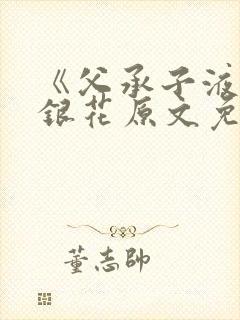 《父承子液
銀花原文免
董志帥